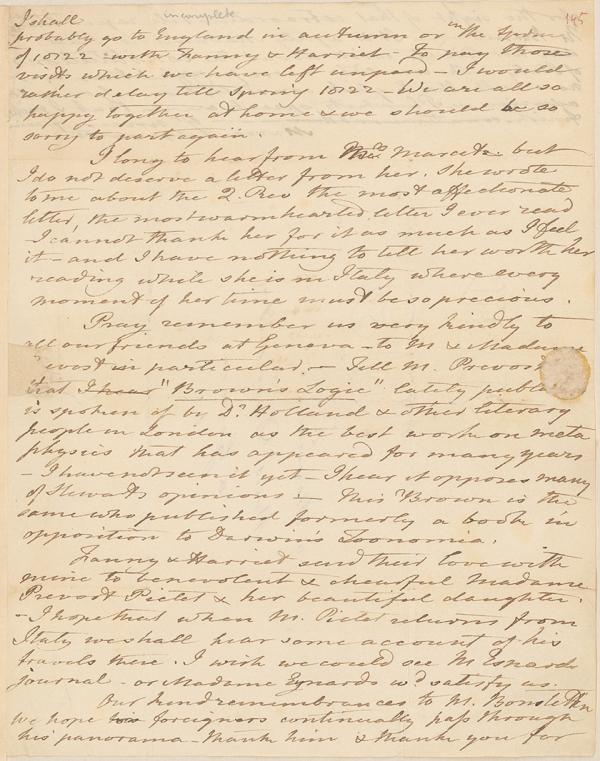 incomplete
145
I shall
probably go to England in autumn or in the Spring
of 1822 with Fanny & Harriet – to pay those
visits which we have left unpaid – I would
rather delay till spring 1822 – We are all so
happy together at home & we should be so
sorry to part again.
I long to hear from Mrs Marcet but
I do not deserve a letter from her. She wrote
to me about the 2. Rev the most affectionate
letter, the most warmhearted letter I ever read
– I cannot thank her for it as much as I feel
it – and I have nothing to tell her worth her
reading while she is in Italy where every
moment of her time must be so precious.
Pray remember us very kindly to
all our friends at Geneva – to M & Madame
evost in particular. – Tell M. Prevost
that I hear "Brown's Logic" lately publ
is spoken of by Dr. Holland & other literary
people in London as the best work on meta
physics that has appeared for many years
– I have not seen it yet – I hear it opposes many
of Stewarts opinions :– This Brown is the
same who published formerly a book in
opposition to Darwin's Zoonomia.
Fanny & Harriet send their love with
mine to benevolent & chearful Madame
Prevost Pictet & her beautiful daughter.
– I hope that when M. Pictet returns from
Italy we shall hear some account of his
travels there. I wish we could see M Eynards
journal – or Madame Eynards wd. satisfy us.
Our kind remembrances to M. Bonstetten
We hope foreigners continually pass through
his panorama – thank him & thank you for